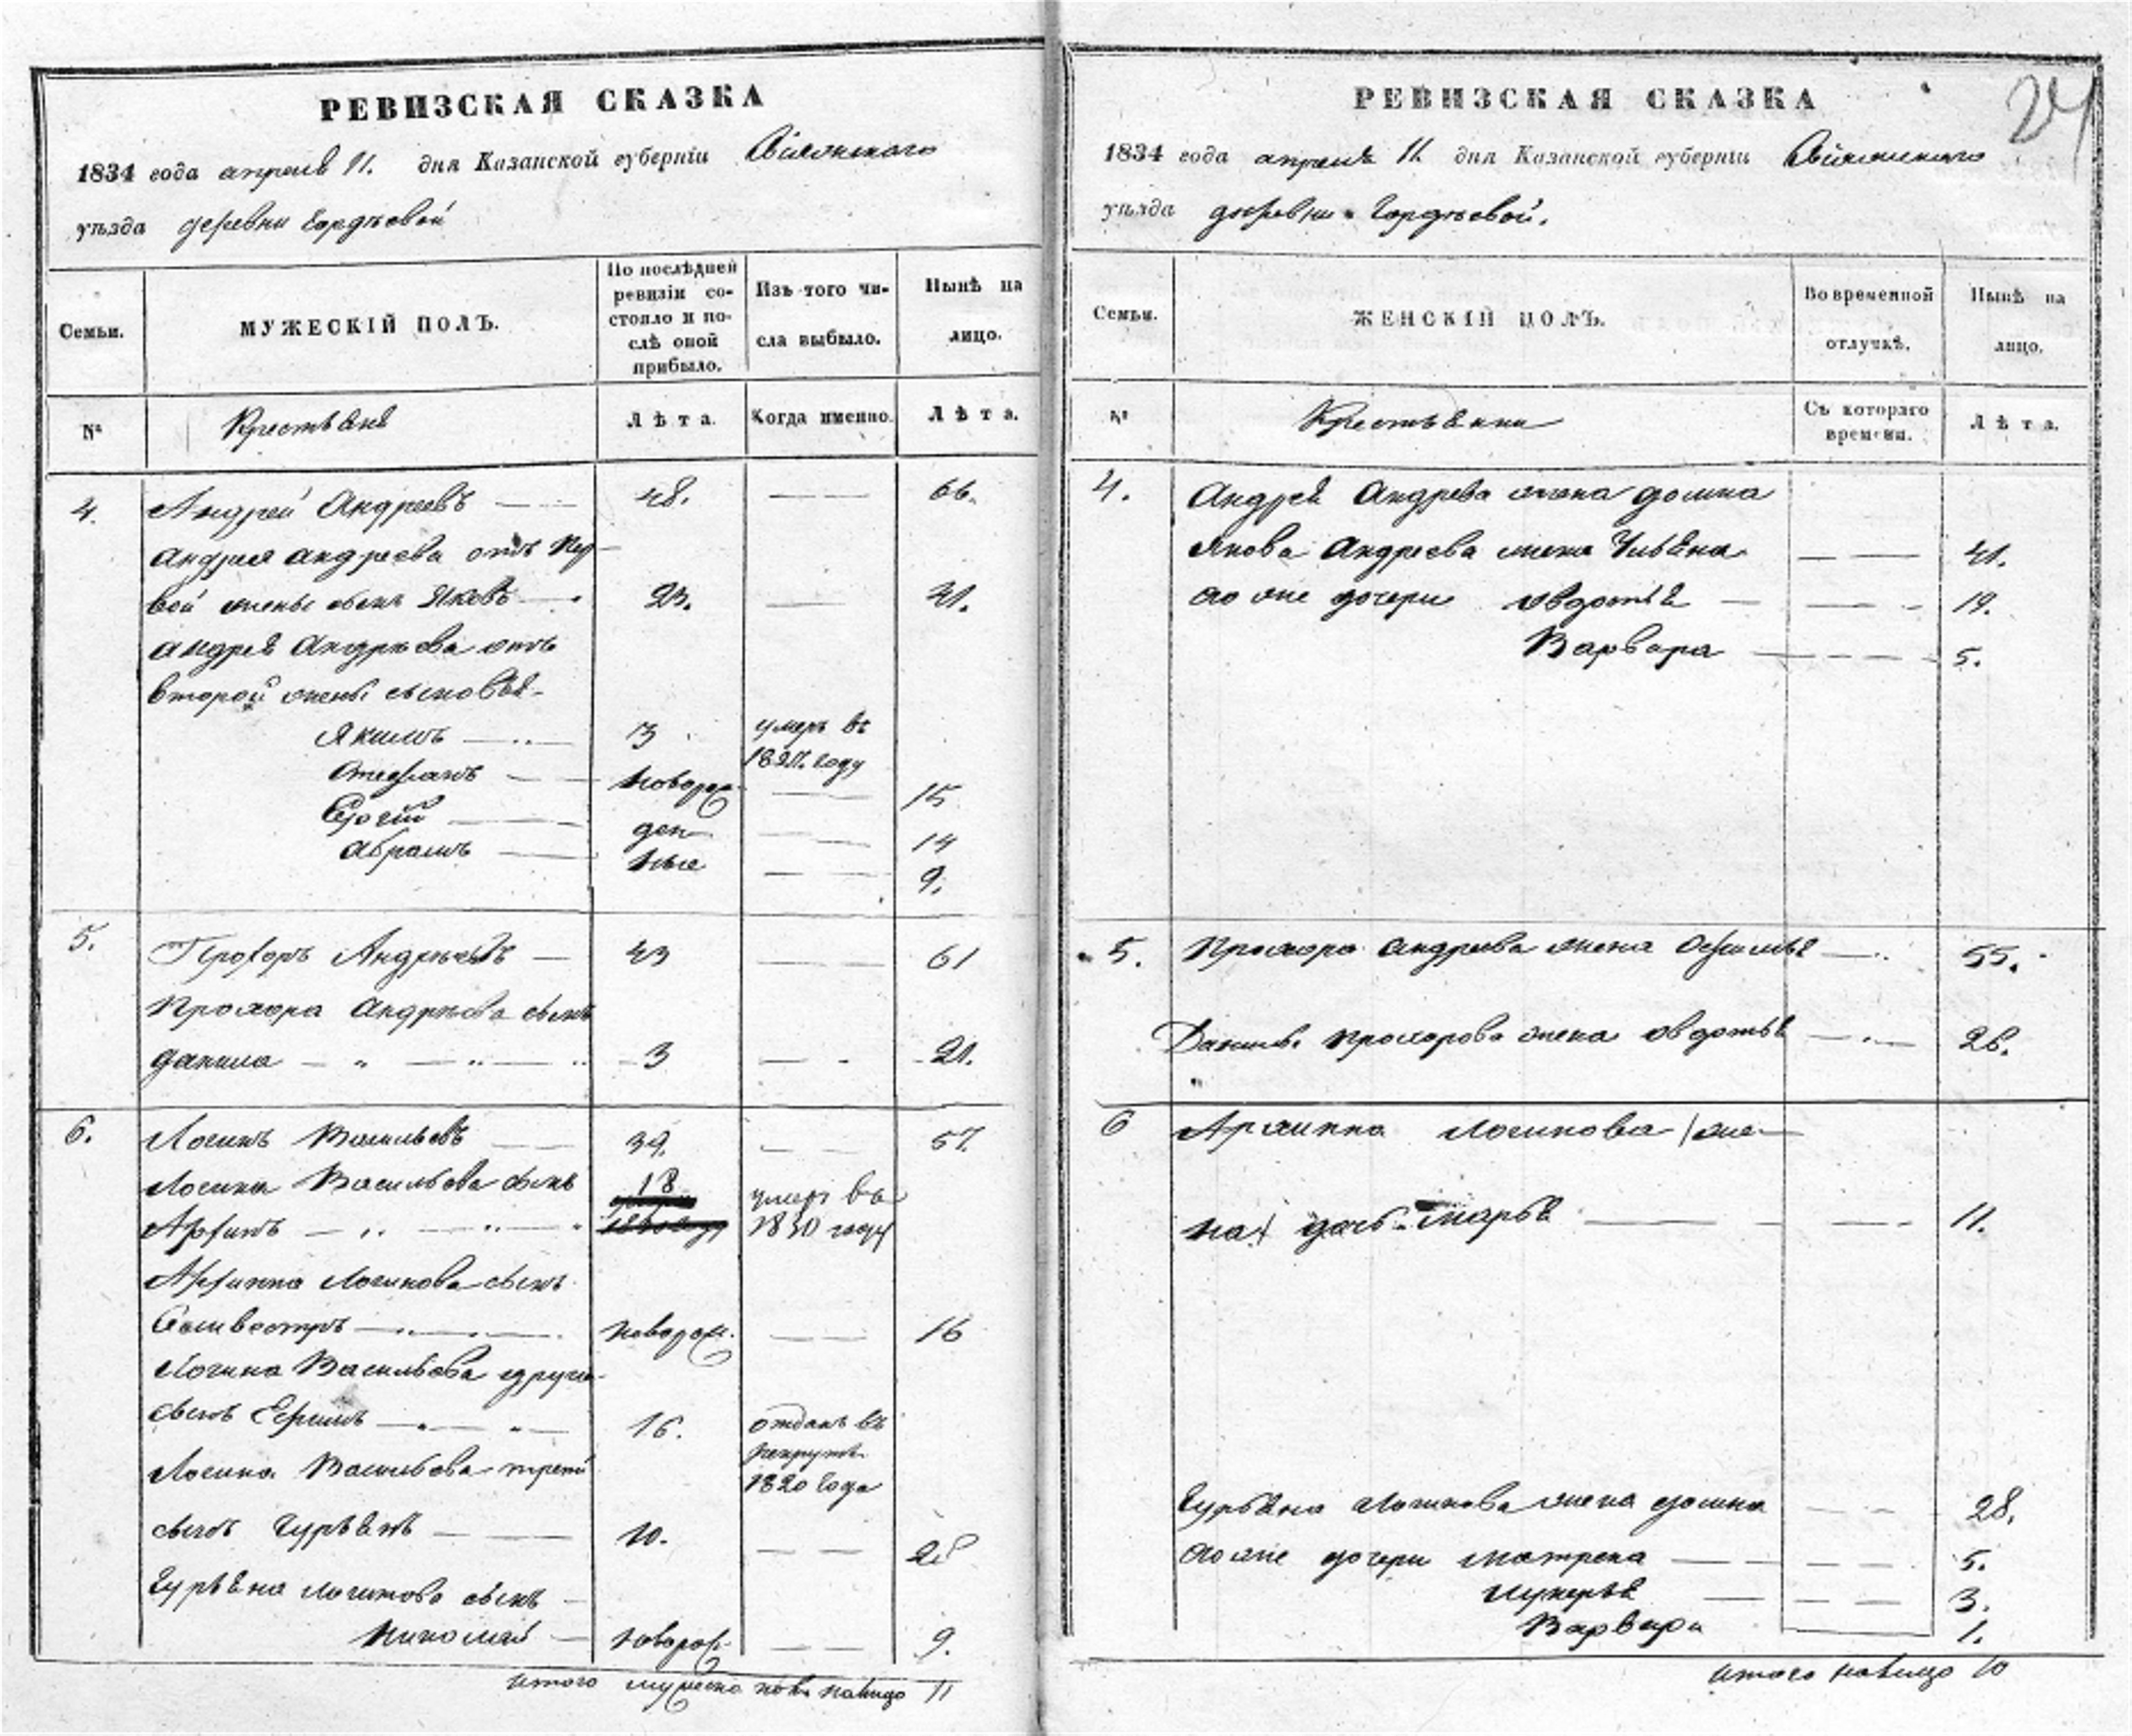 РЕВИЗСКАЯ СКАЗКА
1834 года апреля 11. дня Казанской губерніи Свіяжскаго
уѣзда деревни Гордѣевой
Семьи.
МУЖЕСКІЙ ПОЛЪ.
По послѣдней
ревизіи со-
стояло и по-
слѣ оной
прибыло.
Изъ того чи-
сла выбыло.
Нынѣ на
лицо.
№
Крестьяне
Лѣта.
Когда именно.
Лѣта.
4. Андрей Андреевъ 48. 66.
Андрея Андреева отъ пер
вой жены сынъ Яковъ 23. 41.
Андрея Андрѣева отъ
второй жены сыновья
Якимъ 3 умеръ въ
1821. году
Степанъ новорож 15
Сергій ден 14
Абрамъ ные 9.
5. Прохоръ Андрѣевъ 43 61
Прохора Андрѣева сынъ
Данила 3 21.
6. Логинъ Васильевъ 39. 57.
Логина Васильева сынъ 18 умеръ въ
Архипъ 1830 году
Архиппа Логинова сынъ
Селиверстръ новорож. 16
Логина Васильева другой
сынъ Ефимъ 16. отданъ въ
рекруты
1820 года
Логина Васильева третій
сынъ Гурьянъ 10. 28
Гурьяна Логинова сынъ
Николай новорож. 9.
итого мужеска пола налицо 11
РЕВИЗСКАЯ СКАЗКА
24
1834 года апреля 11. дня Казанской губерніи Свіяжскаго
уѣзда деревни Гордѣевой.
Семьи.
ЖЕНСКІЙ ПОЛЪ.
Во временной
отлучкѣ.
Нынѣ на
лицо.
№
Крестьянки
Съ котораго
времени.
Лѣта.
4. Андрея Андрева жена Домна
Якова Андреева жена Ульяна 41.
ево же дочери Овдотья 19.
Варвара 5.
5. Прохора Андреева жена Офимья 55.
Данилы Прохорова жена Овдотья 26.
6 Архиппа Логинова /же
на/ дочь Марья 11.
Гурьяна Логинова жена Домна 28.
ево же дочери Матрена 5.
Лукерья 3.
Варвара 1.
итого налицо 10